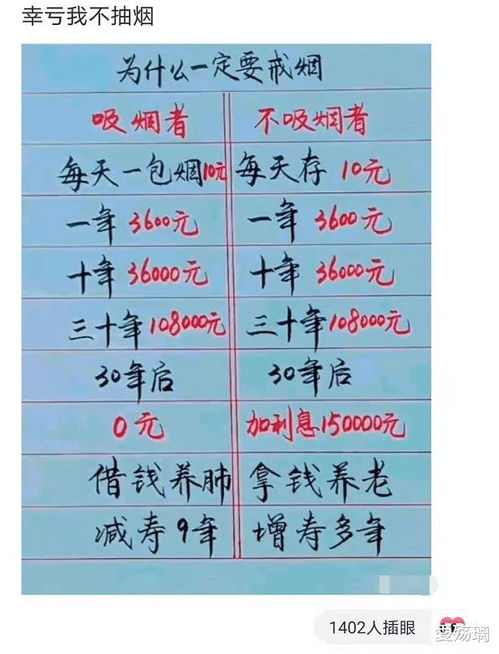 幸亏我不抽烟
为什么一定要戒烟
吸烟者 不吸烟者
每天一包烟10元 每天存 10元
一年 3600元 一年 3600元
十年 36000元 十年 36000元
三十年108000元 三十年108000元
30年后 30年后
0元 加利息150000元
借钱养肺 拿钱养老
减寿9年 增寿多年
1402人插眼